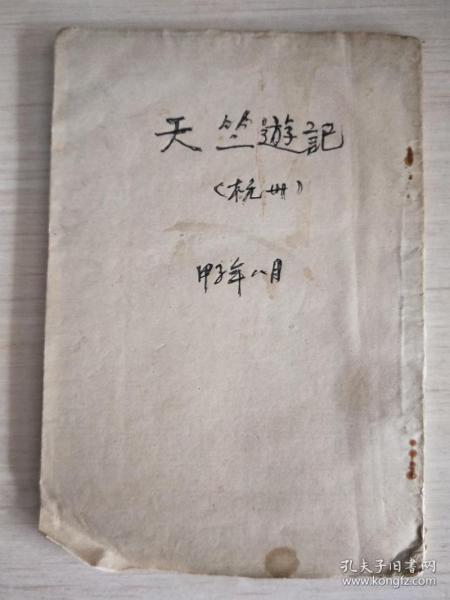 天竺遊記
（杭州）
甲子年八月
孔夫子旧书网
www.kongfz.com